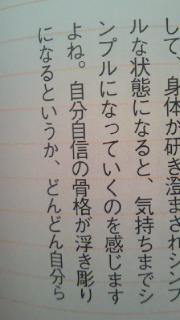 して、身体が研ぎ澄まされシンプ
ルな状態になると、気持ちまでシ
ンプルになっていくのを感じます
よね。自分自信の骨格が浮き彫り
になるというか、どんどん自分ら